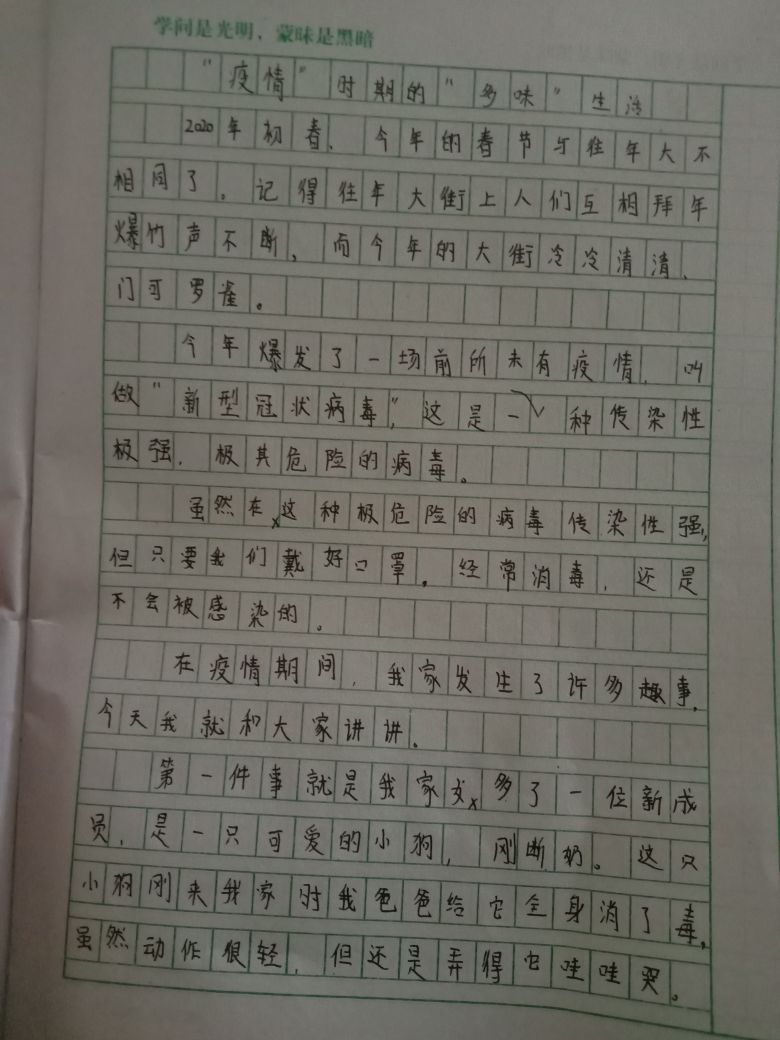 学问是光明，蒙昧是黑暗
“疫情”时期的“多味”生活
2020年初春、今年的春节与往年大不
相同了。记得往年大街上人们互相拜年
爆竹声不断，而今年的大街冷冷清清、
门可罗雀。
今年爆发了一场前所未有疫情，叫
做“新型冠状病毒”，这是一种传染性
极强，极其危险的病毒。
虽然在这种极危险的病毒传染性强，
但只要我们戴好口罩。经常消毒，还是
不会被感染的。
在疫情期间，我家发生了许多趣事，
今天我就和大家讲讲。
第一件事就是我家多了一位新成
员，是一只可爱的小狗，刚断奶。这只
小狗刚来我家时我爸爸给它全身消了毒，
虽然动作很轻，但还是弄得它哇哇哭。